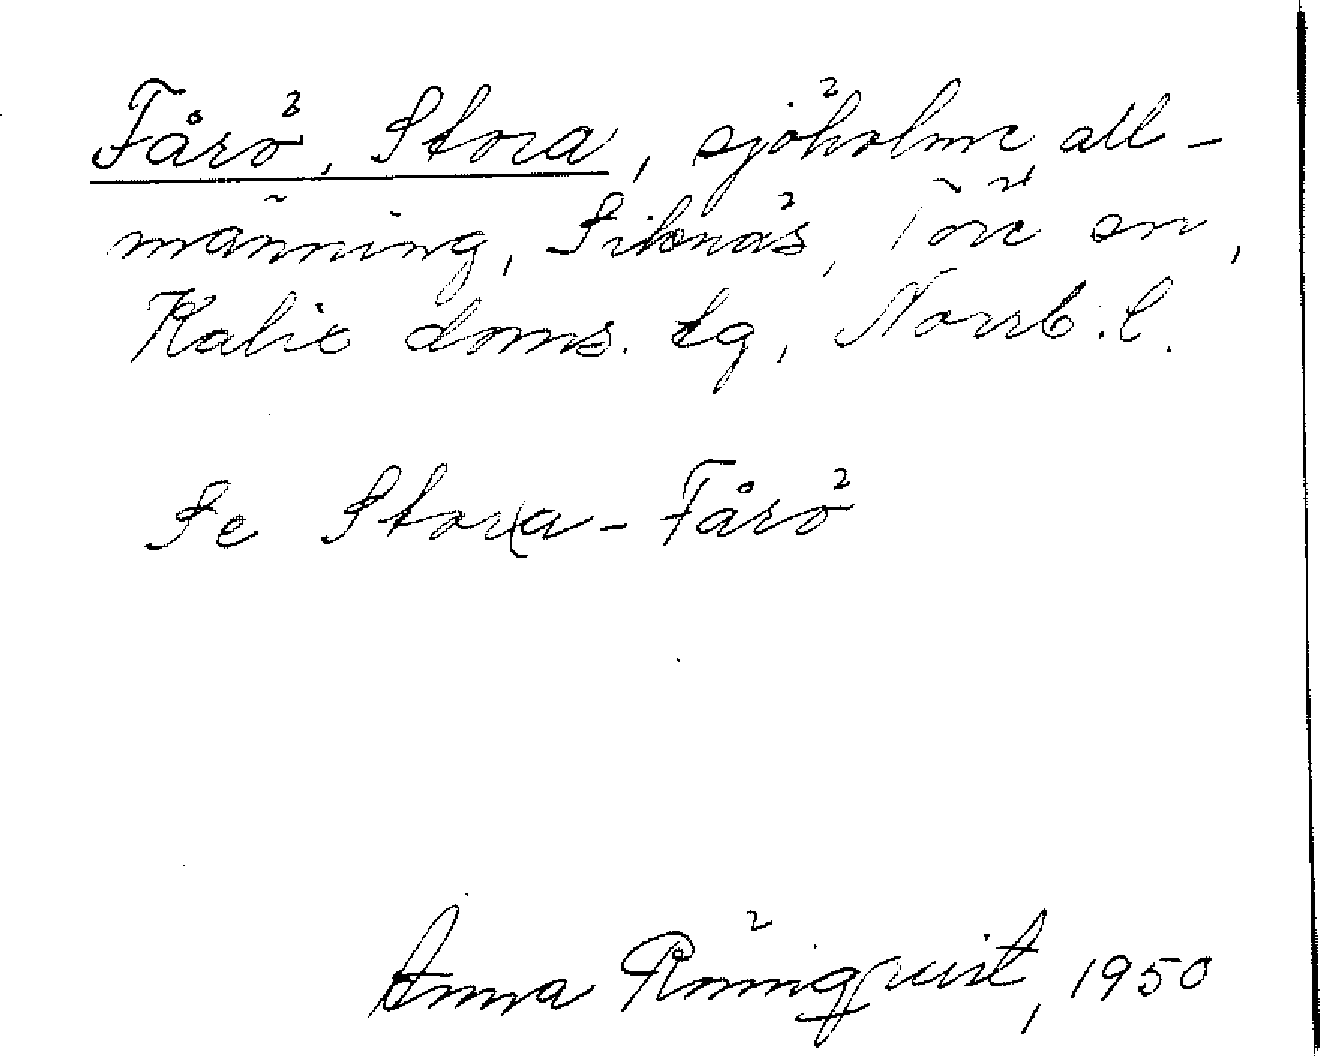 Fårö, Stora, sjöholme, all-
männing, Siknäs, Töre sn,
Kalix doms. tg, Norrb. l.
Se Stora-Fårö
Anna Rönnqvist, 1950